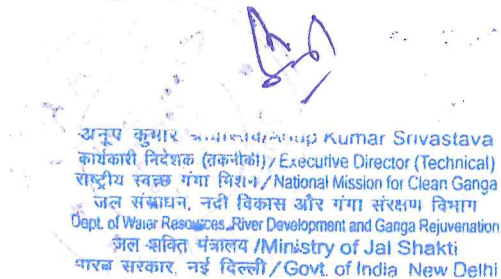 अनूप कुमार Kumar Srivastava
कार्यकारी निदेशक (तकनीकी)/Executive Director (Technical)
राष्ट्रीय स्वच्छ गंगा मिशन/National Mission for Clean Ganga
जल संसाधन, नदी विकास और गंगा संरक्षण विभाग
Dept. of Water Resources, River Development and Ganga Rejuvenation
जल शक्ति मंत्रालय/Ministry of Jal Shakti
भारत सरकार, नई दिल्ली/Govt. of India, New Delhi